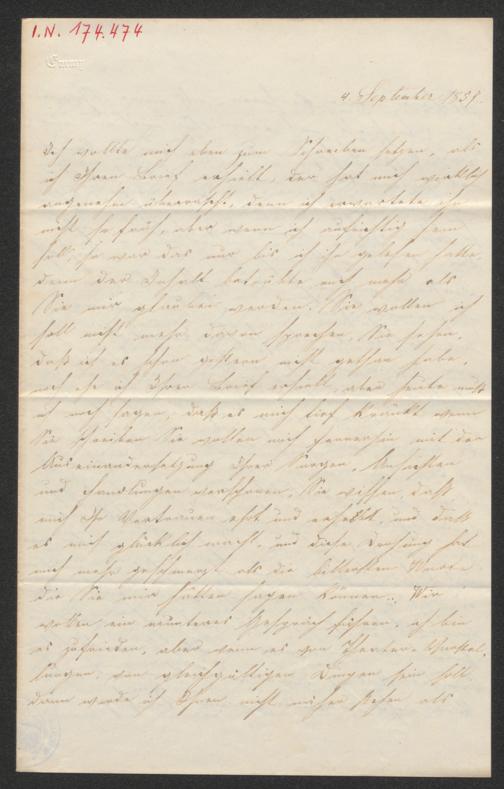 I.N. 174.474
Emmy
4 September 1851.
Ich wollte mich eben zum Schreiben setzen, als
ich Ihren Brief erhielt, der hat mich wirklich
angenehm überrascht, denn ich erwartete ihn
nicht so früh, aber wenn ich aufrichtig sein
soll, so war das nur bis ich ihn gelesen hatte,
denn der Inhalt betrübte mich mehr als
Sie mir glauben werden. Sie wollen ich
soll nicht mehr davon sprechen, Sie sehen,
daß ich es schon gestern nicht gethan habe,
noch ehe ich Ihren Brief erhielt, aber heute muß
ich noch sagen, daß es mich tief kränkt wenn
Sie schreiben Sie wollen mich fernerhin mit der
Auseinandersetzung Ihrer Sorgen, Ansichten
und Handlungen verschonen. Sie wissen, daß
mich Ihr Vertrauen ehrt und erhebt, und daß
es mich glücklich macht, und diese Drohung hat
mich mehr geschmerzt als die bittersten Worte
die Sie mir hätten sagen können. Wir
wollen ein munteres Gespräch führen, ich bin
es zufrieden, aber wenn es von Theater-Vorstel-
lungen, von gleichgültigen Dingen sein soll
dann werde ich Ihnen nicht näher stehen als